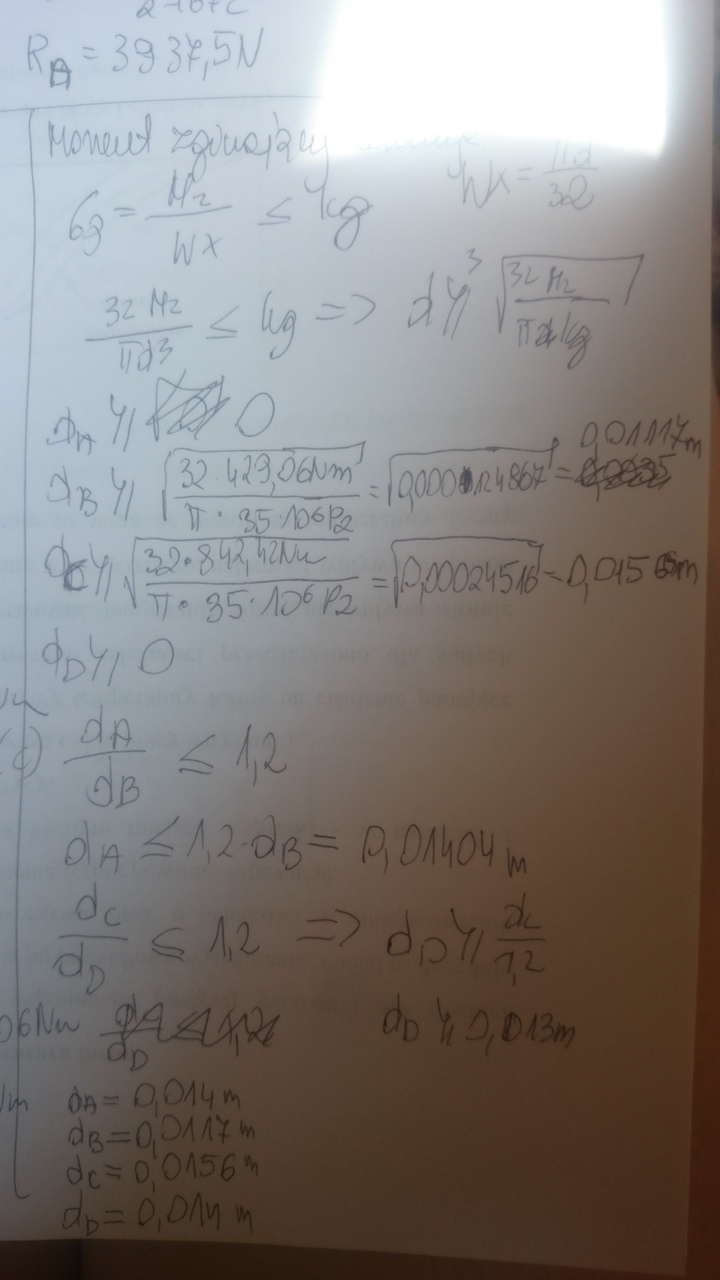 2-187C
R_A = 3937,5N
Moment zginający
Wx = πd/32
σg = Mz/Wx ≤ kg
32 Mz/πd3 ≤ kg => d ≥ 3√(32 Mz/π kg)
dA ≥ 0
0,01117m
dB ≥ √(32·429,06Nm/π·35·10^6 Pa) = √0,000124867 =
dC ≥ √(32·842,42Nm/π·35·10^6 Pa) = √0,00024516 = 0,0156m
dD ≥ 0
c) dA/dB ≤ 1,2
dA ≤ 1,2·dB = 0,01404 m
dC/dD ≤ 1,2 => dD ≥ dc/1,2
06Nm
dD ≥ 0,013m
Nm
dA = 0,014 m
dB = 0,0117 m
dC = 0,0156 m
dD = 0,014 m